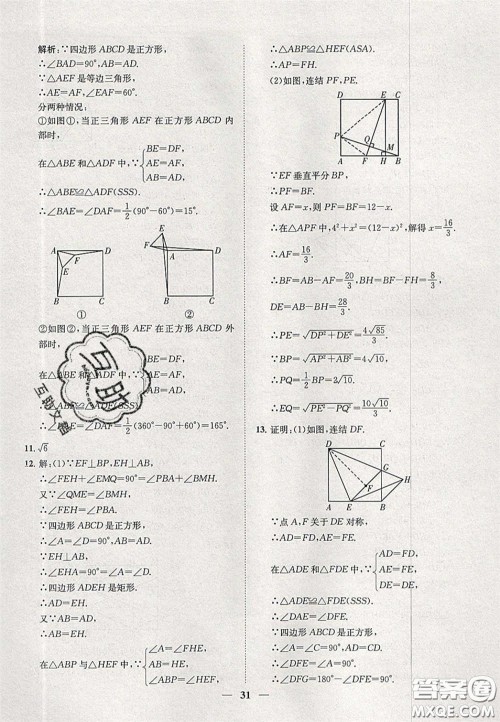 解析:∵四边形 ABCD 是正方形,
∴∠BAD=90°,AB=AD.
∵△AEF 是等边三角形,
∴AE=AF,∠EAF=60°.
分两种情况:
①如图①,当正三角形 AEF 在正方形 ABCD 内
部时,
在△ABE 和△ADF 中,∵{BE=DF, AE=AF, AB=AD,
∴△ABE≌△ADF(SSS).
∴∠BAE=∠DAF=1/2(90°-60°)=15°.
A D F E B C
①
E F A D B C
②
②如图②,当正三角形 AEF 在正方形 ABCD 外
部时,
在△ABE 和△ADF 中,∵{BE=DF, AE=AF, AB=AD,
∴△ABE≌△ADF(SSS).
∴∠BAE=∠DAF=1/2(360°-90°+60°)=165°.
11.√6
12.解:(1)∵EF⊥BP,EH⊥AB,
∴∠FEH+∠EMQ=90°=∠PBA+∠BMH.
又∵∠QME=∠BMH,
∴∠FEH=∠PBA.
∵四边形 ABCD 是正方形,
∴∠A=∠D=90°,AB=AD.
又∵∠EHA=90°,
∴四边形 ADEH 是矩形.
∴AD=EH.
又∵AB=AD,
∴AB=EH.
在△ABP 与△HEF 中,∵{∠A=∠FHE, AB=EH, ∠PBA=∠FEH,
∴△ABP≌△HEF(ASA).
∴AP=FH.
(2)如图,连结 PF,PE.
D E C P Q M A F H B
∵EF 垂直平分 BP,
∴PF=BF.
设 AF=x,则 PF=BF=12-x.
∴在△APF 中,4²+x²=(12-x)²,解得 x=16/3.
∴AF=16/3.
∴BF=AB-AF=20/3,BH=BF-FH=8/3,
DE=AH=28/3.
∴PE=√(DP²+DE²)=4√85/3.
∴BP=√(AP²+AB²)=4√10.
∴PQ=1/2BP=2√10.
∴EQ=√(PE²-PQ²)=10√10/3.
13.证明:(1)如图,连结 DF.
D C G H F A E B
∵点 A,F 关于 DE 对称,
∴AD=FD,AE=FE.
在△ADE 和△FDE 中,∵{AD=FD, AE=FE, DE=DE,
∴△ADE≌△FDE(SSS).
∴∠A=∠DFE.
∵四边形 ABCD 是正方形,
∴∠A=∠C=90°,AD=CD.
∴∠DFE=∠A=90°.
∴∠DFG=180°-∠DFE=90°.
31
互助
互助文
答案圈
MXQE.COM